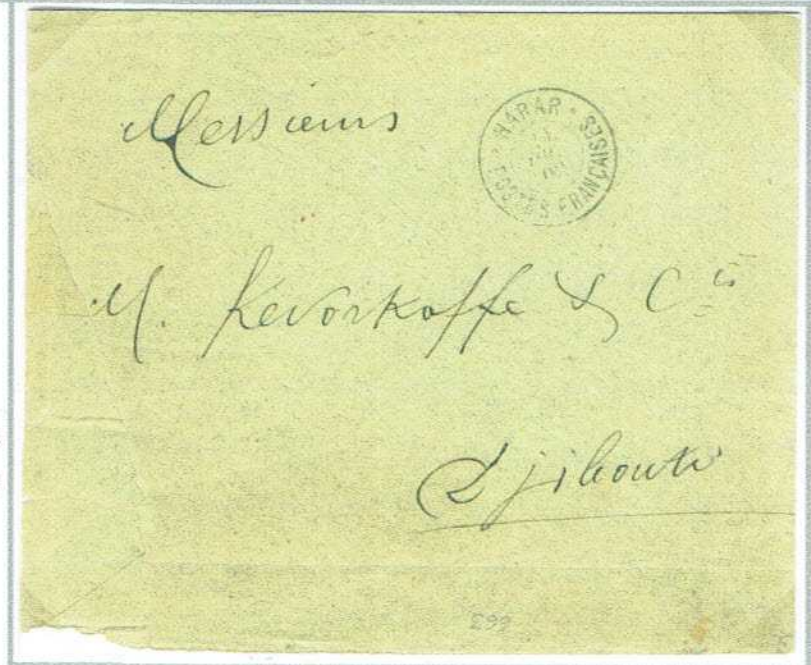 Messieurs
HARAR
POSTES FRANÇAISES
M. Kevorkoffe & Cie
Djibouti
299